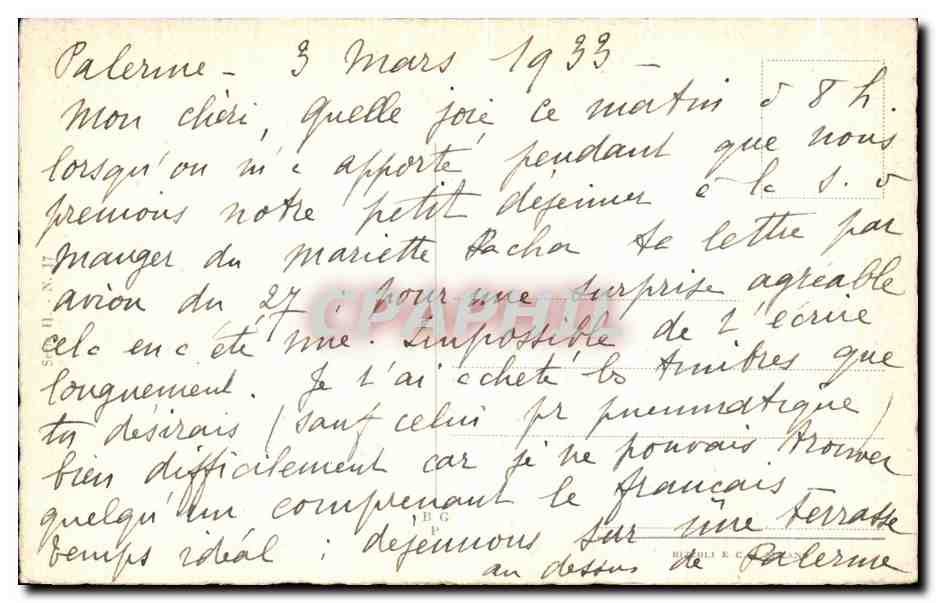 Palerme - 3 Mars 1933 -
Mon chéri, Quelle joie ce matin à 8 h.
lorsqu'on m'a apporté pendant que nous
prenions notre petit déjeuner à la s. à
manger du Mariette Pacha ta lettre par
avion du 27. pour une surprise agréable
cela en a été une. Impossible de t'écrire
longuement. Je t'ai acheté les timbres que
tu désirais (sauf celui pr pneumatique)
bien difficilement car je ne pouvais trouver
quelqu'un comprenant le français
temps idéal : déjeunons sur une terrasse
au dessus de Palerme
N. 17
B G
P
CPAPHIL